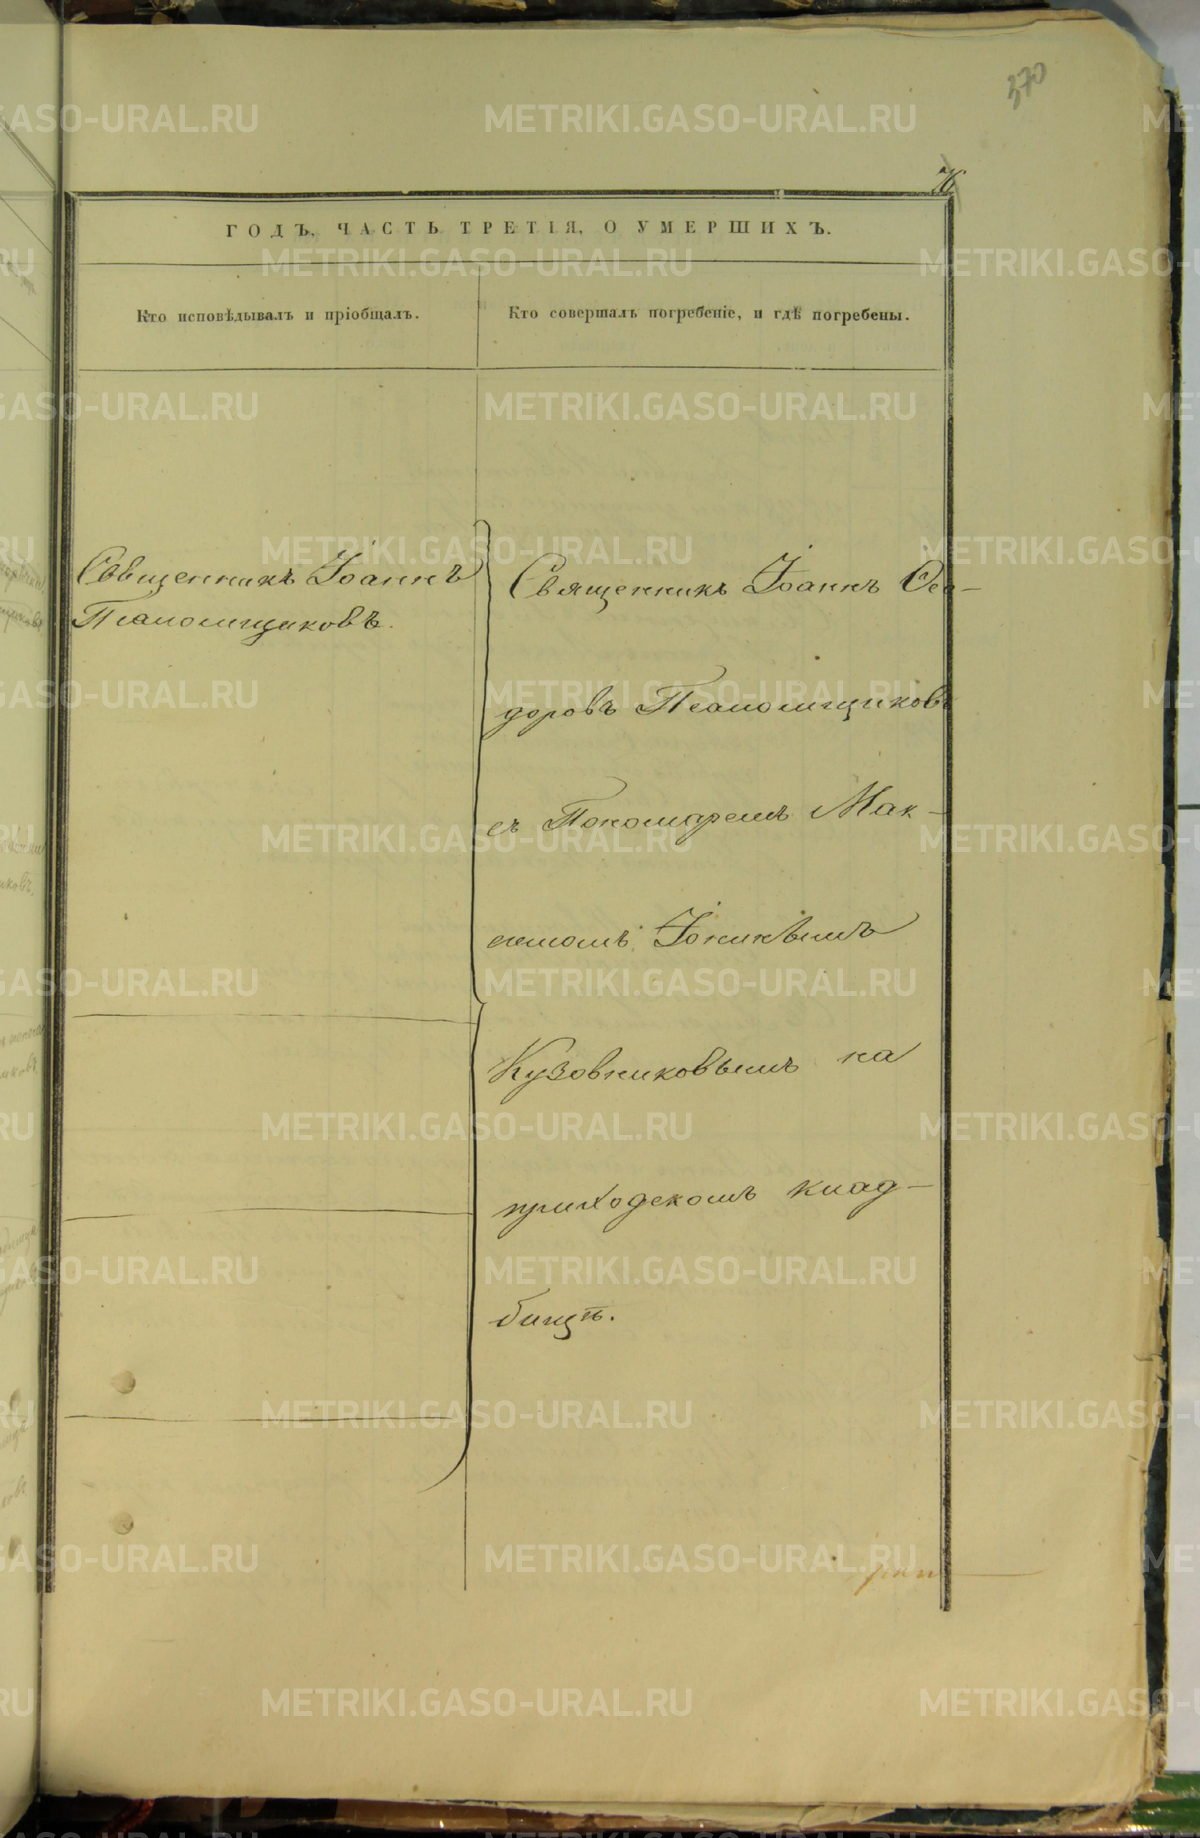 370
76
ГОДЪ, ЧАСТЬ ТРЕТІЯ, О УМЕРШИХЪ.
Кто исповѣдывалъ и пріобщалъ.
Кто совершалъ погребеніе, и гдѣ погребены.
Священникъ Іоаннъ
Псаломщиковъ.
Священникъ Іоаннъ Ѳео-
доровъ Псаломщиковъ
съ Пономаремъ Мак-
симомъ Іоникѣемъ
Кузовниковымъ на
приходскомъ клад-
бищѣ.
METRIKI.GASO-URAL.RU